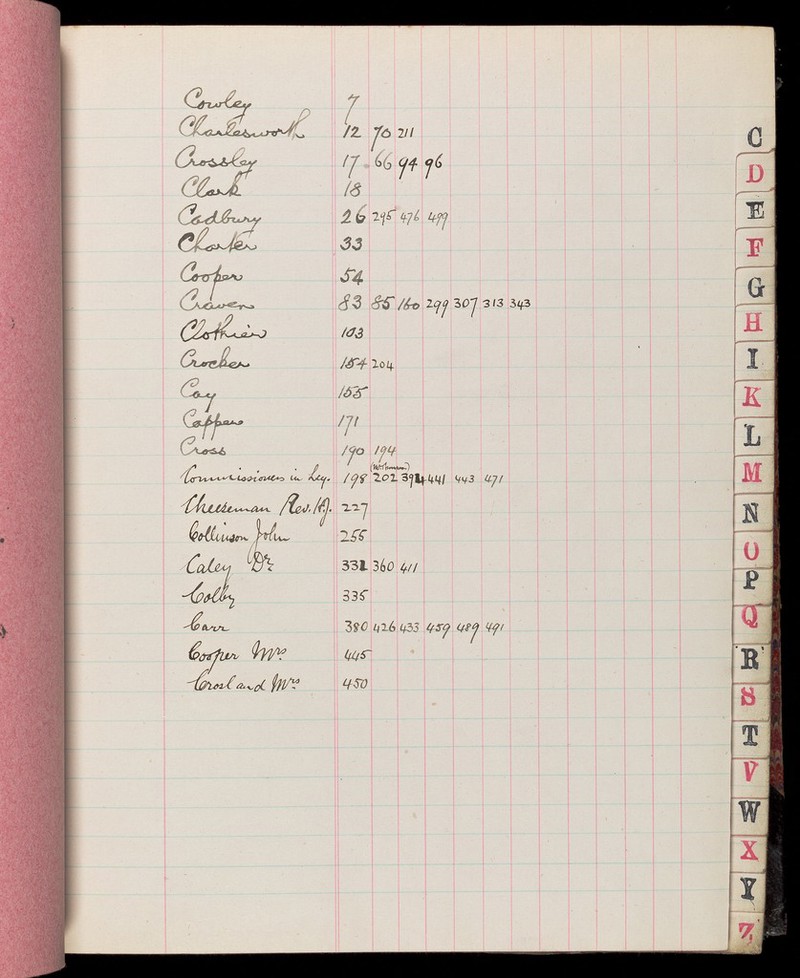 Cowley 7
Charlesworth 12 70 211
Crossley 17 66 94 96
Clark 18
Cadbury 26 295 476 499
Charter 33
Cooper 54
Craven 83 85 160 299 307 313 343
Clothier 103
Crocker 154 204
Cay 155
Capper 171
Cross 190 194
Commissioners in Ley. 198 202 394 441 443 471
Cheeseman Rev. 227
Collinson John 255
Caley Dr 331 360 411
Colby 335
Carr 380 426 433 459 489 491
Cooper Mrs 445
Crosland Mrs 450
C
D
E
F
G
H
I
K
L
M
N
O
P
Q
R
S
T
V
W
X
Y
Z